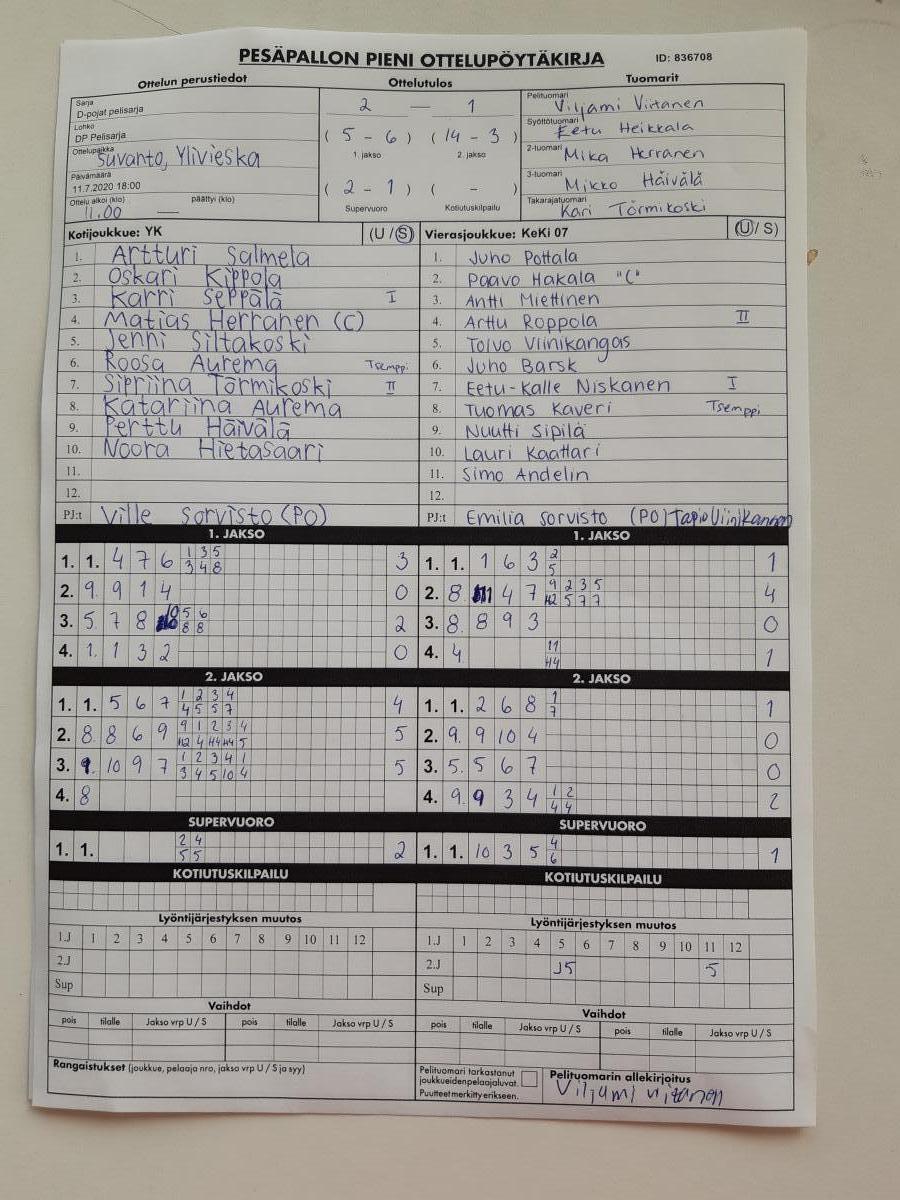 PESÄPALLON PIENI OTTELUPÖYTÄKIRJA ID: 836708
Ottelun perustiedot Ottelutulos Tuomarit
Sarja
D-pojat pelisarja
Lohko
DP Pelisarja
Ottelupaikka Suvanto, Ylivieska
Päivämäärä
11.7.2020 18:00
Ottelu alkoi (klo) päättyi (klo)
11.00 —
2 — 1
( 5 - 6 ) ( 14 - 3 )
1. jakso 2. jakso
( 2 - 1 ) ( - )
Supervuoro Kotiutuskilpailu
Pelituomari Viljami Virtanen
Syöttötuomari Eetu Heikkala
2-tuomari Mika Herranen
3-tuomari Mikko Häivälä
Takarajatuomari Kari Törmikoski
Kotijoukkue: YK (U / S)
1. Artturi Salmela
2. Oskari Kippola
3. Karri Seppälä I
4. Matias Herranen (C)
5. Jenni Siltakoski
6. Roosa Aurema Tsemppi
7. Sipriina Törmikoski II
8. Katariina Aurema
9. Perttu Häivälä
10. Noora Hietasaari
11.
12.
PJ:t Ville Sorvisto (PO)
Vierasjoukkue: KeKi 07 (U / S)
1. Juho Pottala
2. Paavo Hakala "C"
3. Antti Miettinen
4. Arttu Roppola II
5. Toivo Viinikangas
6. Juho Barsk
7. Eetu-Kalle Niskanen I
8. Tuomas Kaveri Tsemppi
9. Nuutti Sipilä
10. Lauri Kaattari
11. Simo Andelin
12.
PJ:t Emilia Sorvisto (PO)
1. JAKSO
1. 1. 4 7 6 1 3 5 3
3 4 8
2. 9. 9 1 4 0
3. 5. 7 8 10 5 6 2
8 8
4. 1. 1 3 2 0
2. JAKSO
1. 1. 5 6 7 1 2 3 4 4
4 5 5 7
2. 8. 8 6 9 9 1 2 3 4 5
3. 9. 10 9 7 1 2 3 4 1 5
3 4 5 10 4
4. 8
SUPERVUORO
1. 1. 2 4 2
5 5
KOTIUTUSKILPAILU
1. JAKSO
1. 1. 1 6 3 2 1
5
2. 8. 4 7 9 2 3 5 4
3. 8. 8 9 3 0
4. 4. 11 1
2. JAKSO
1. 1. 2 6 8 1 1
7
2. 9. 9 10 4 0
3. 5. 5 6 7 0
4. 9. 9 3 4 1 2 2
4 4
SUPERVUORO
1. 1. 10 3 5 4 1
6
KOTIUTUSKILPAILU
Lyöntijärjestyksen muutos
1.J 1 2 3 4 5 6 7 8 9 10 11 12
2.J
Sup
Lyöntijärjestyksen muutos
1.J 1 2 3 4 5 6 7 8 9 10 11 12
2.J J5 5
Sup
Vaihdot
pois tilalle Jakso vrp U / S pois tilalle Jakso vrp U / S
Vaihdot
pois tilalle Jakso vrp U / S pois tilalle Jakso vrp U / S
Rangaistukset (joukkue, pelaaja nro, jakso vrp U / S ja syy)
Pelituomari tarkastanut
joukkueidenpelaajaluvat.
Puutteet merkitty erikseen.
Pelituomarin allekirjoitus
Viljami Virtanen